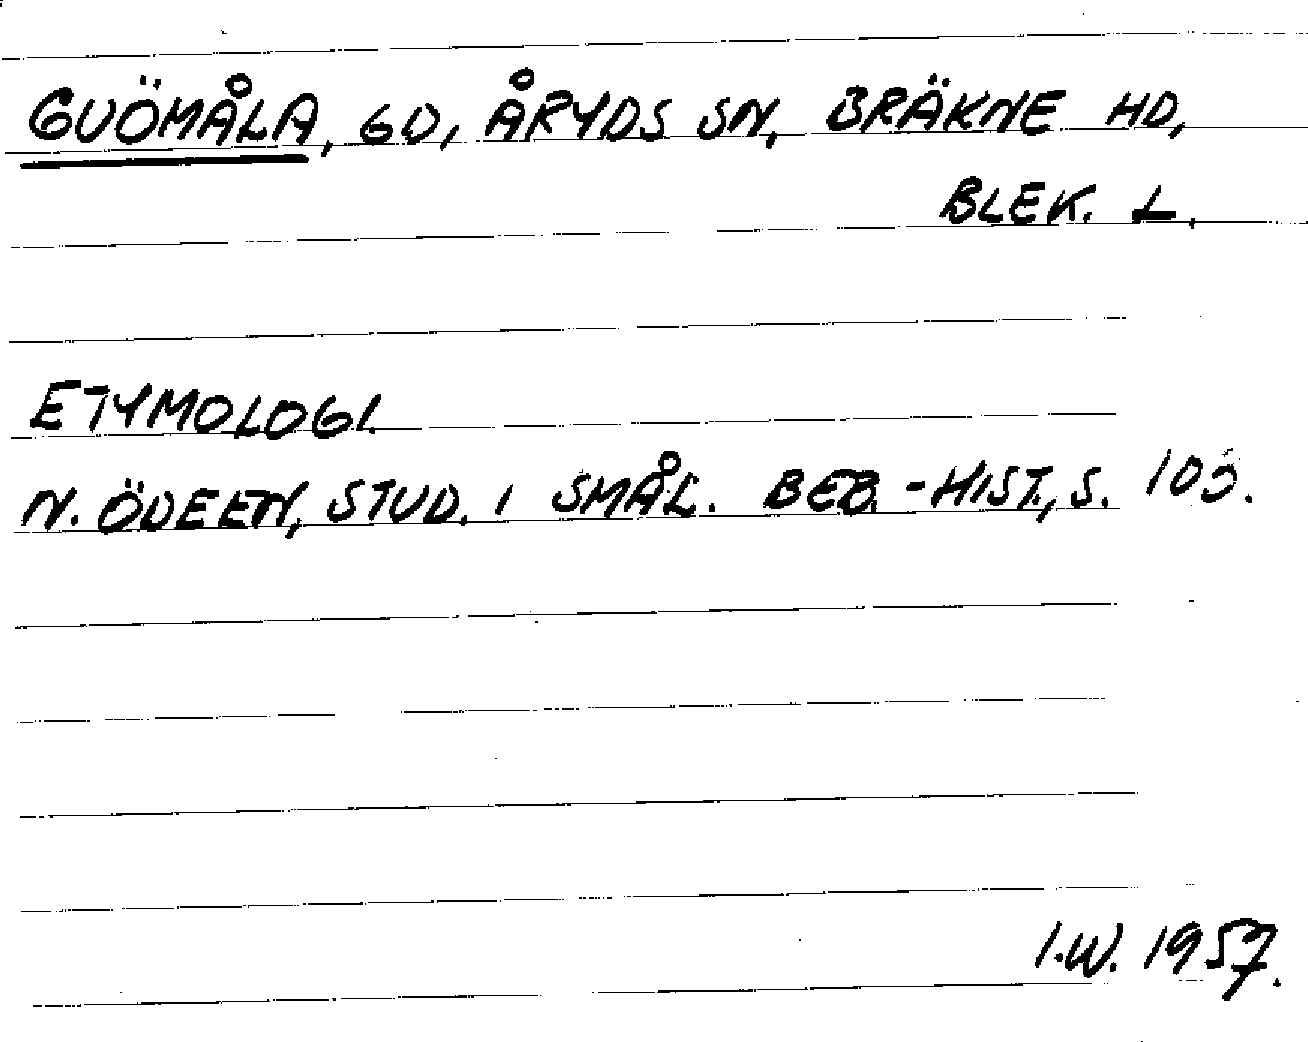 GUÖMÅLA, GD, ÅRYDS SN, BRÄKNE HD,
BLEK. L.
ETYMOLOGI.
N. ÖDEEN, STUD. I SMÅL. BEB.-HIST., S.
I.W. 1957.